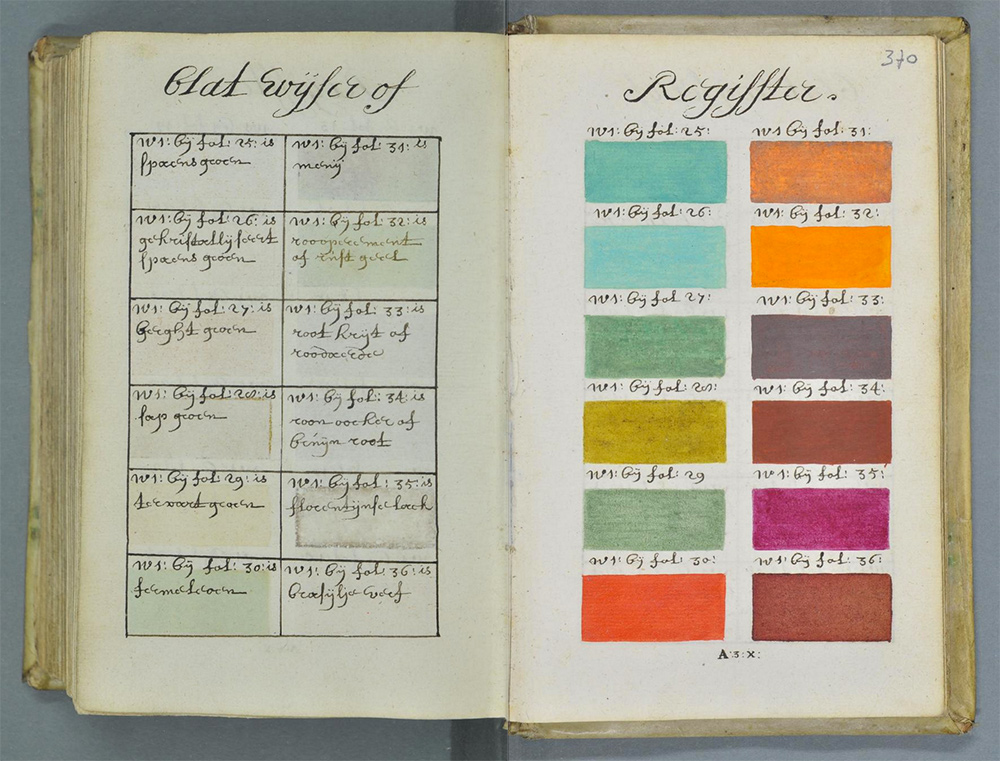 Blat Wijser of
w1: bij fol: 25: is
spaens groen
w1: bij fol: 31: is
menij
w1: bij fol: 26: is
gekristallyseert
spaens groen
w1: bij fol: 32: is
roooperement
of rust geel
w1: bij fol: 27: is
berght groen
w1: bij fol: 33: is
root krijt of
roodaerde
w1: bij fol: 28: is
sap groen
w1: bij fol: 34: is
roon oocker of
bruijn root
w1: bij fol: 29: is
groen
w1: bij fol: 35: is
florentijnse lack
w1: bij fol: 30: is
w1: bij fol: 36: is
brasijlje verf
370
Regisster.
w1: bij fol: 25:
w1: bij fol: 31:
w1: bij fol: 26:
w1: bij fol: 32:
w1: bij fol: 27:
w1: bij fol: 33:
w1: bij fol: 28:
w1: bij fol: 34:
w1: bij fol: 29
w1: bij fol: 35:
w1: bij fol: 30:
w1: bij fol: 36:
A:3:X: